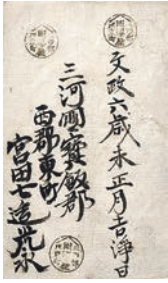 文政六歳未正月吉浄日
三河國寳飯郡
西郡東町
宮田七造